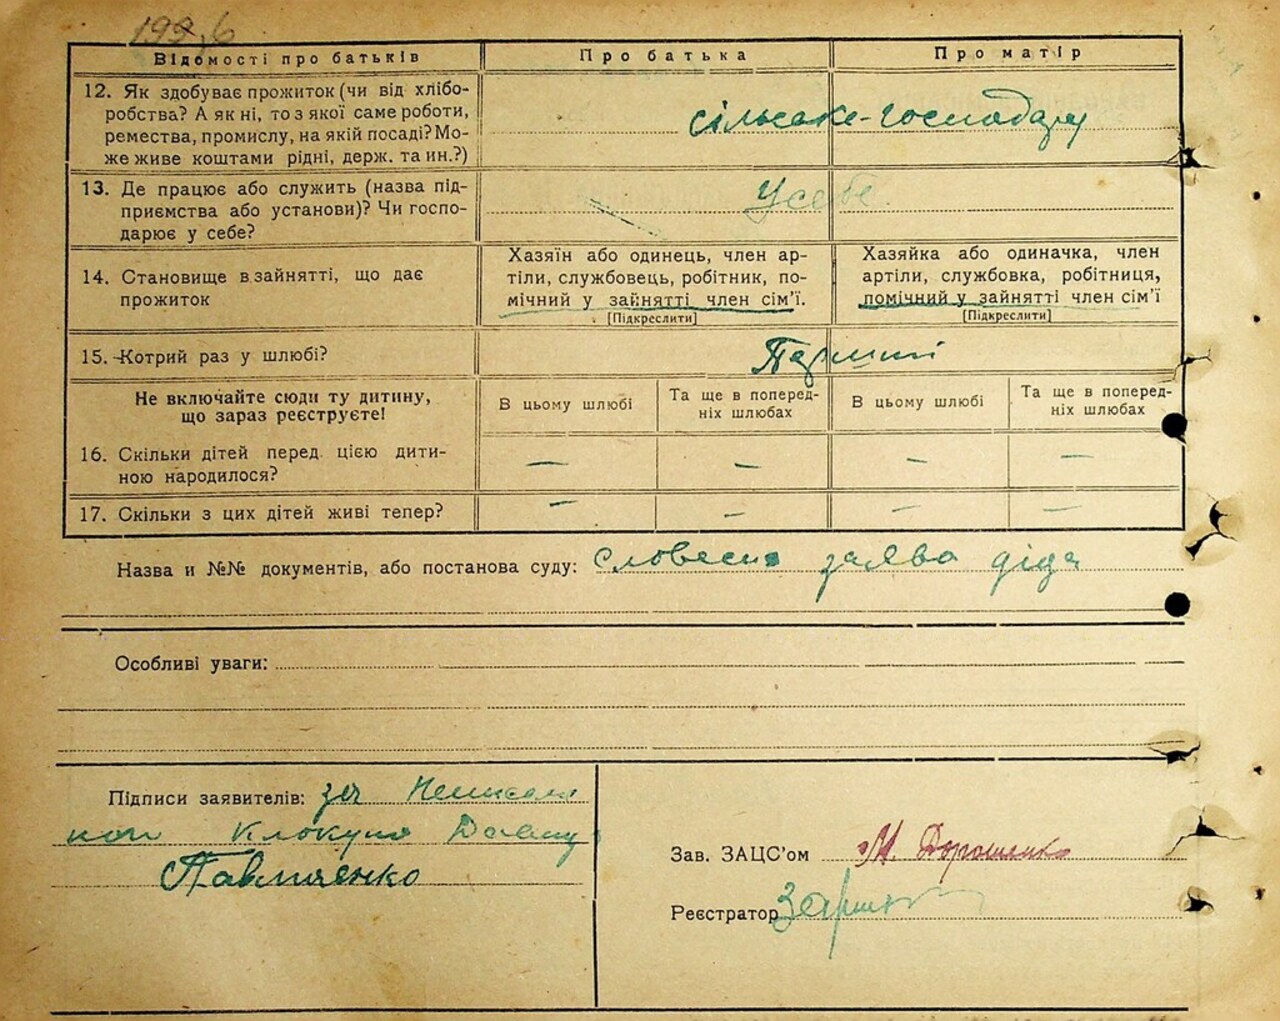 Відомості про батьків
Про батька
Про матір
12. Як здобуває прожиток (чи від хлібо-
робства? А як ні, то з якої саме роботи,
ремества, промислу, на якій посаді? Мо-
же живе коштами рідні, держ. та ин.?)
сільське-господару
13. Де працює або служить (назва під-
приємства або установи)? Чи госпо-
дарює у себе?
У себе
14. Становище в зайнятті, що дає
прожиток
Хазяїн або одинець, член ар-
тіли, службовець, робітник, по-
мічний у зайнятті член сім'ї.
[Підкреслити]
Хазяйка або одиначка, член
артіли, службовка, робітниця,
помічний у зайнятті член сім'ї
[Підкреслити]
15. Котрий раз у шлюбі?
Перший
Не включайте сюди ту дитину,
що зараз реєструєте!
В цьому шлюбі
Та ще в поперед-
ніх шлюбах
В цьому шлюбі
Та ще в поперед-
ніх шлюбах
16. Скільки дітей перед цією дити-
ною народилося?
— — — —
17. Скільки з цих дітей живі тепер?
— — — —
Назва и №№ документів, або постанова суду: словесна заява діда
Особливі уваги:
Підписи заявителів: за
Клокуна
Павличенко
Зав. ЗАЦС'ом М. Дорошенко
Реєстратор